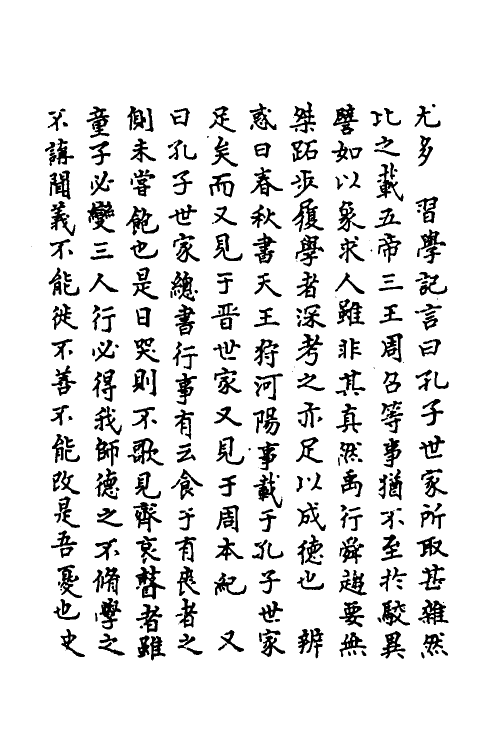 尤多　習學記言曰孔子世家所取甚雜然
比之載五帝三王周召等事猶不至於駮異
譬如以象求人雖非其真然禹行舜趨要無
桀跖步履學者深考之亦足以成德也　辨
惑曰春秋書天王狩河陽事載于孔子世家
足矣而又見于晋世家又見于周本紀　又
曰孔子世家總書行事有云食于有喪者之
側未嘗飽也是日哭則不歌見齊衰瞽者雖
童子必變三人行必得我師德之不脩學之
不講聞義不能徙不善不能改是吾憂也史